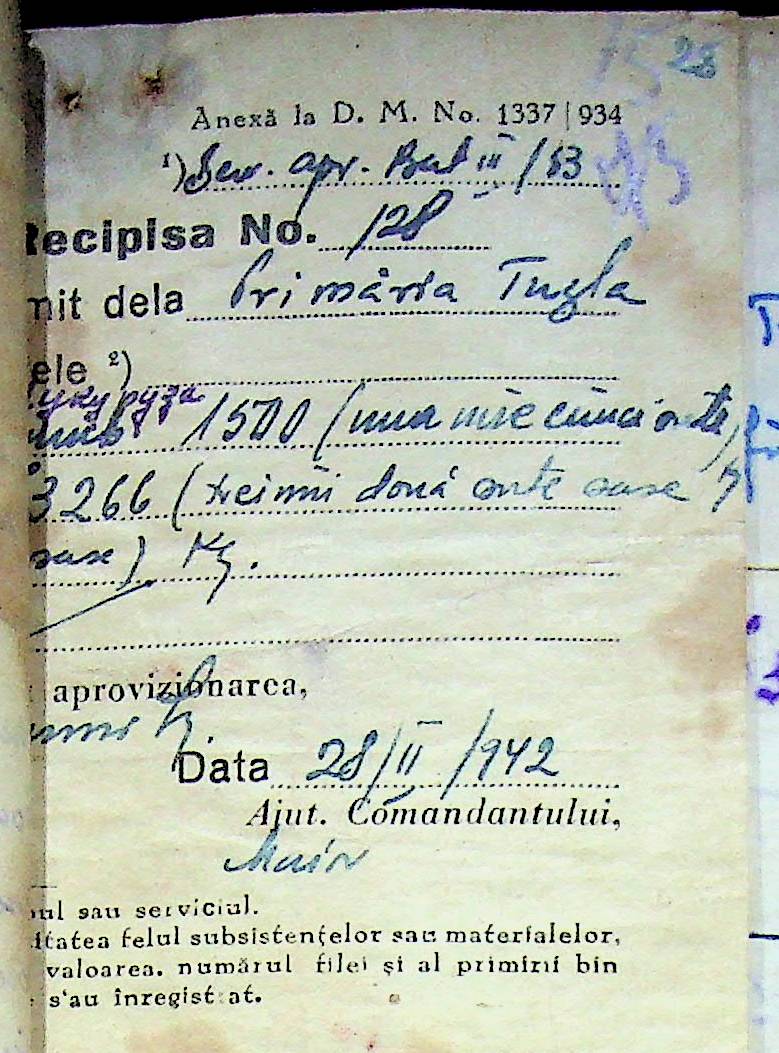 28
75
Anexă la D. M. No. 1337 | 934
73
¹) Serv. apr. Bat III / 83
Recipisa No. 128
mit dela Primăria Tuzla
ele ²)
кукуруза
1500 (una mie cinci sute)
3266 (trei mii două sute șase
șase) Kg.
aprovizionarea,
Data 28/II/942
Ajut. Comandantului,
Maior
ul sau serviciul.
itatea felul subsistențelor sau materialelor,
valoarea. numărul filei și al primirii bin
s'au înregistrat.